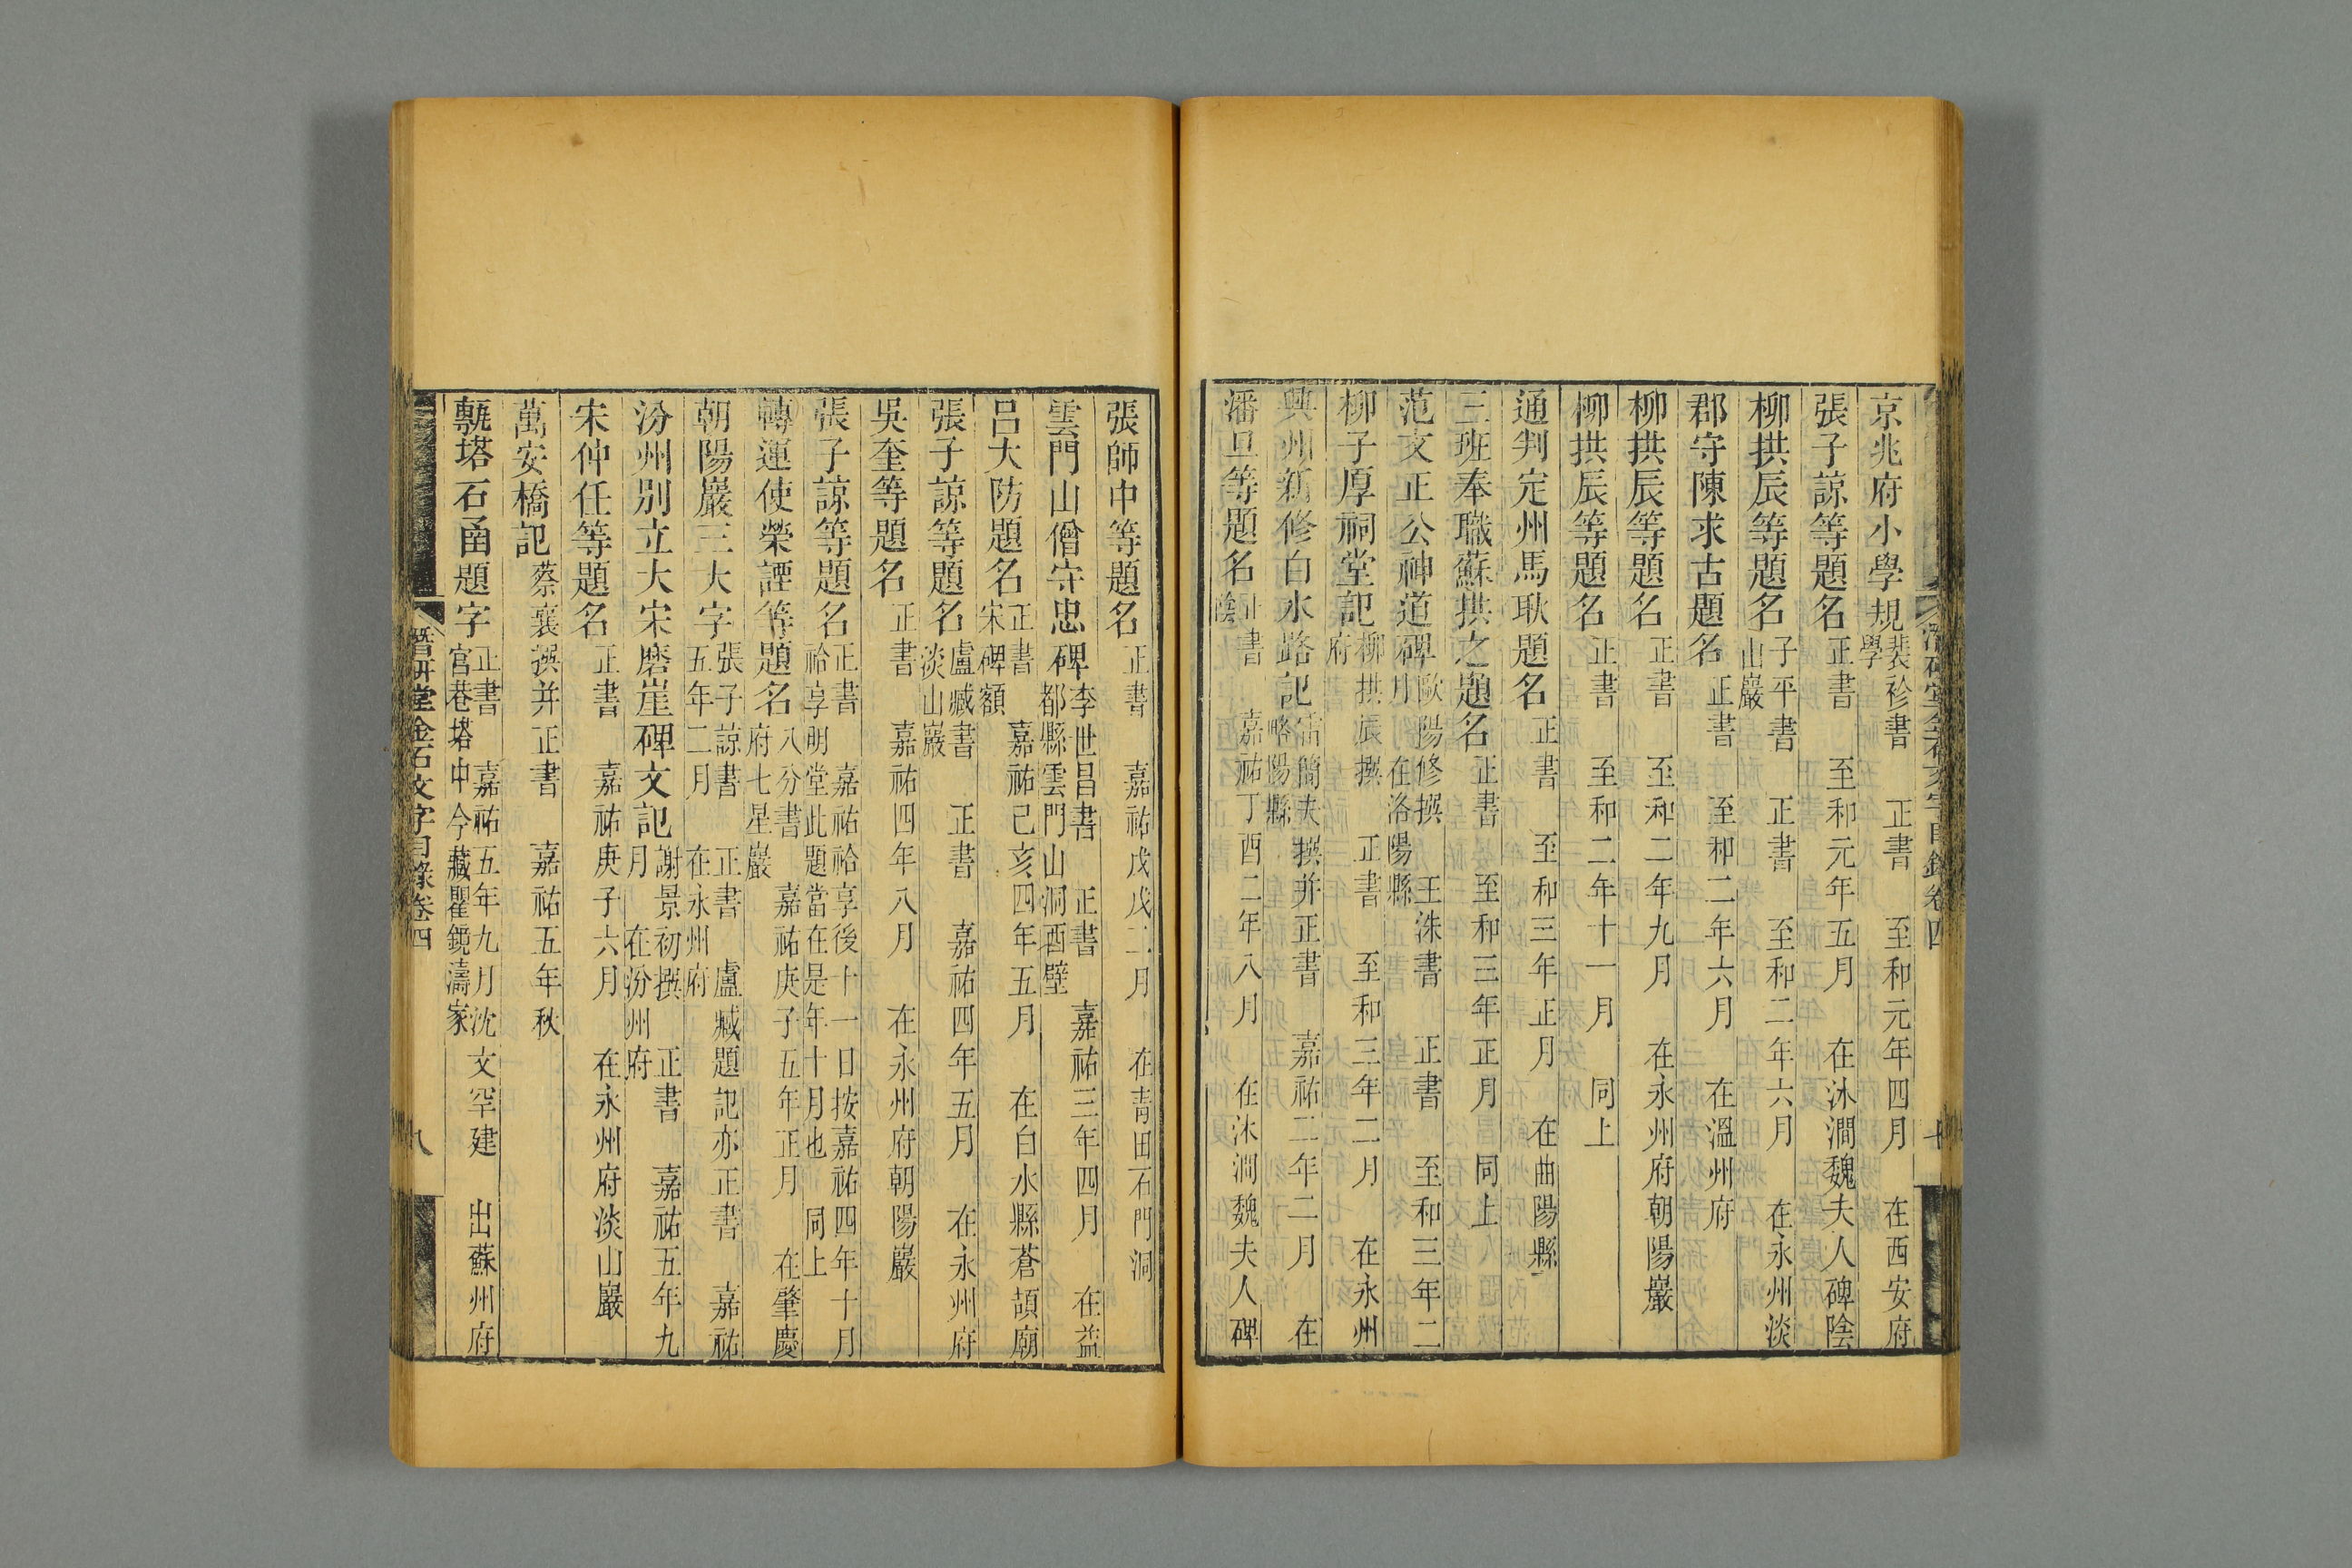 京兆府小學規 裴袗書 正書 至和元年四月 在西安府學
張子諒等題名 正書 至和元年五月 在沐澗魏夫人碑陰
柳拱辰等題名 子平書 正書 至和二年六月 在永州淡山巖
郡守陳求古題名 正書 至和二年六月 在溫州府
柳拱辰等題名 正書 至和二年九月 在永州府朝陽巖
柳拱辰等題名 正書 至和二年十一月 同上
通判定州馬耿題名 正書 至和三年正月 在曲陽縣
三班奉職蘇拱之題名 正書 至和三年正月 同上
范文正公神道碑 歐陽修撰 王洙書 正書 至和三年二月 在洛陽縣
柳子厚祠堂記 柳拱辰撰 正書 至和三年二月 在永州府
興州新修白水路記 雷簡夫撰并正書 嘉祐二年二月 在略陽縣
潘旦等題名 正書 嘉祐丁酉二年八月 在沐澗魏夫人碑陰
潛研堂金石文字目錄卷四
張師中等題名 正書 嘉祐戊戌二月 在青田石門洞
雲門山僧守忠碑 李世昌書 正書 嘉祐三年四月 在益都縣雲門山洞西壁
呂大防題名 正書 嘉祐己亥四年五月 在白水縣蒼頡廟宋碑額
張子諒等題名 盧臧書 正書 嘉祐四年五月 在永州府淡山巖
吳奎等題名 正書 嘉祐四年八月 在永州府朝陽巖
張子諒等題名 正書 嘉祐祫享後十一日按嘉祐四年十月祫享明堂此題當在是年十月也 同上
轉運使榮諲等題名 八分書 嘉祐庚子五年正月 在肇慶府七星巖
朝陽巖三大字 張子諒書 正書 盧臧題記亦正書 嘉祐五年二月 在永州府
汾州別立大宋磨崖碑文記 謝景初撰 正書 嘉祐五年九月 在汾州府
宋仲任等題名 正書 嘉祐庚子六月 在永州府淡山巖
萬安橋記 蔡襄撰并正書 嘉祐五年秋
甎塔石函題字 正書 嘉祐五年九月沈文罕建 出蘇州府宮巷塔中今藏瞿鏡濤家
潛研堂金石文字目錄卷四 八